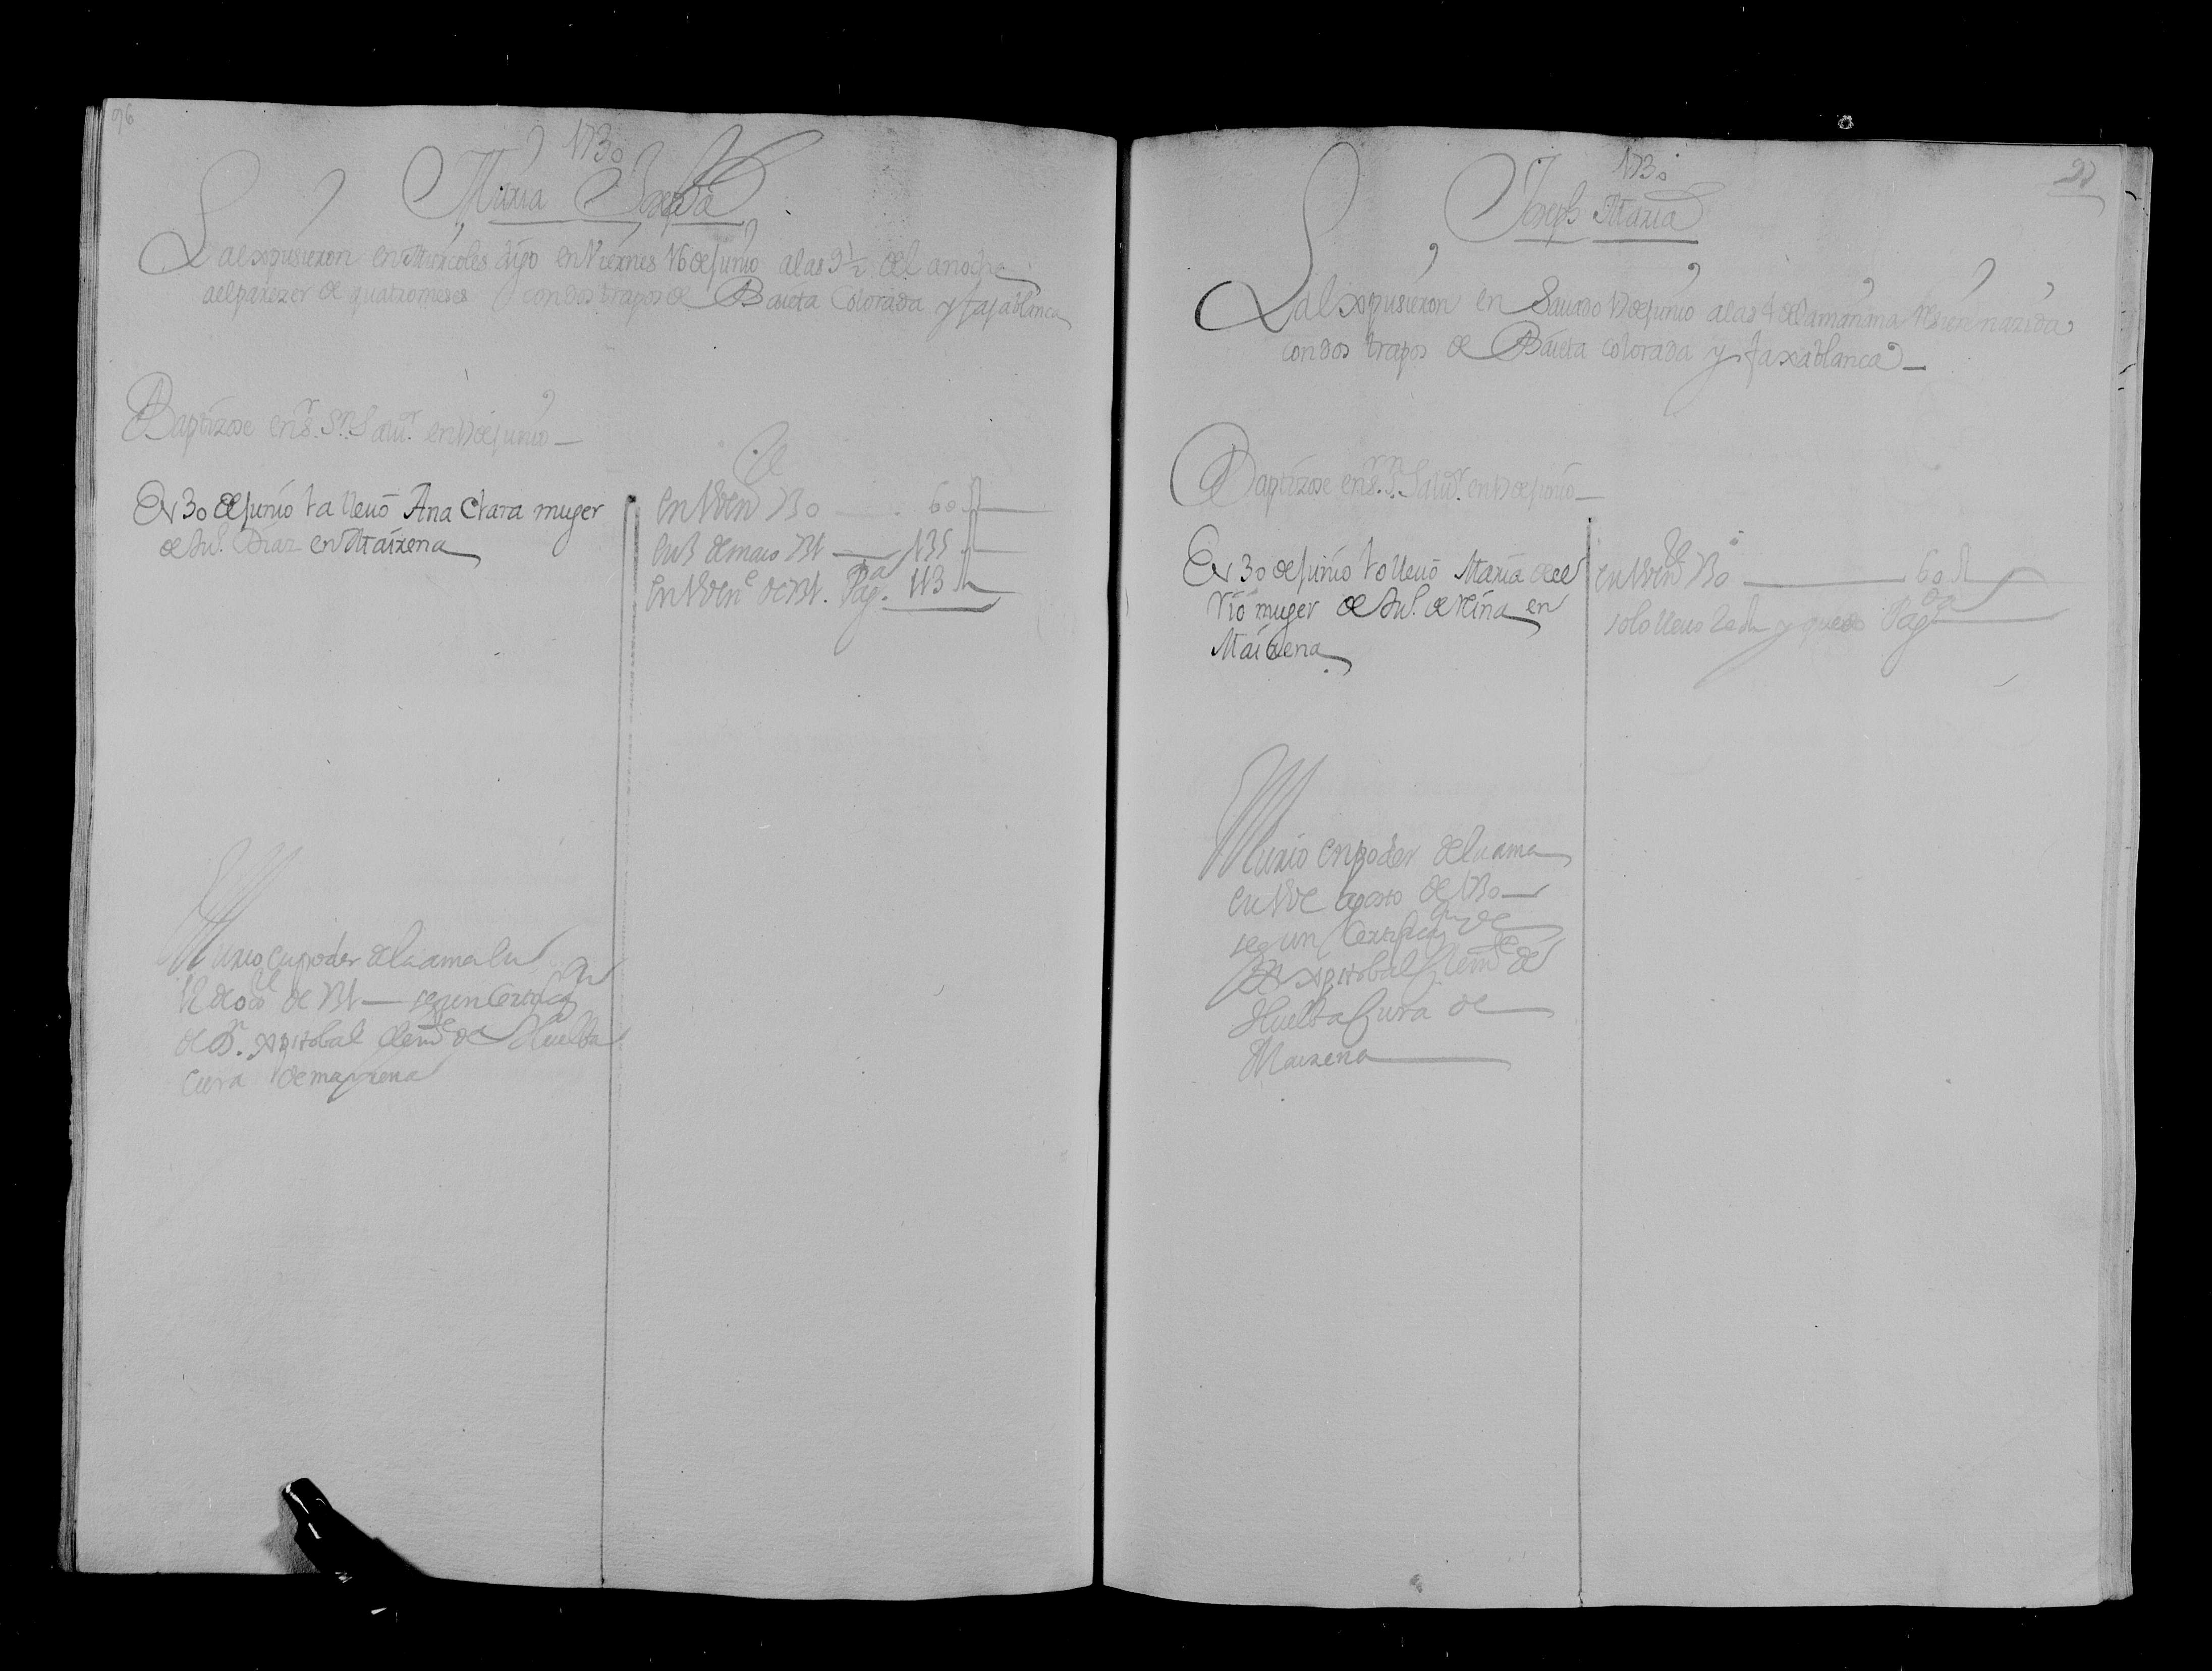 96
1730
Maria Josepha
La expusieron en Miercoles digo en Viernes 16 de Junio a las 9 1/2 de la noche
al parezer de quatro meses con dos trapos de Baieta Colorada y faja blanca
Baptizose en S.r S.n Salu.r en 17 de Junio
En 30 de Junio la lleuo Ana Clara muger
de Ju.o Diaz en Mairena
en 1 de en.e 730 60 R
en 8 de maio 731 135
en 1 de en.e de 731. Pag.da 113
Murio en poder de la ama en
12 de oct.e de 731 segun Certifica.on
de D.n Xptobal Clem.te de Huelba
Cura de mayrena
97
1730
Joseph Maria
La expusieron en Sauado 17 de Junio a las 4 de la mañana resien nazida
con dos trapos de Baieta colorada y faxa blanca
Baptizose en S.r S.n Salu.r en 17 de Junio
En 30 de Junio lo lleuo Maria de el
rio muger de Ju.o de Nina en
Mairena
en 1 de en.e 730 60 R
solo lleuo 20 R y quedo Pag.da
Murio en poder de la ama
en 1 de agosto de 1730
segun Certifica.on de
D.n Xptobal Clem.te de
Huelba Cura de
Mairena